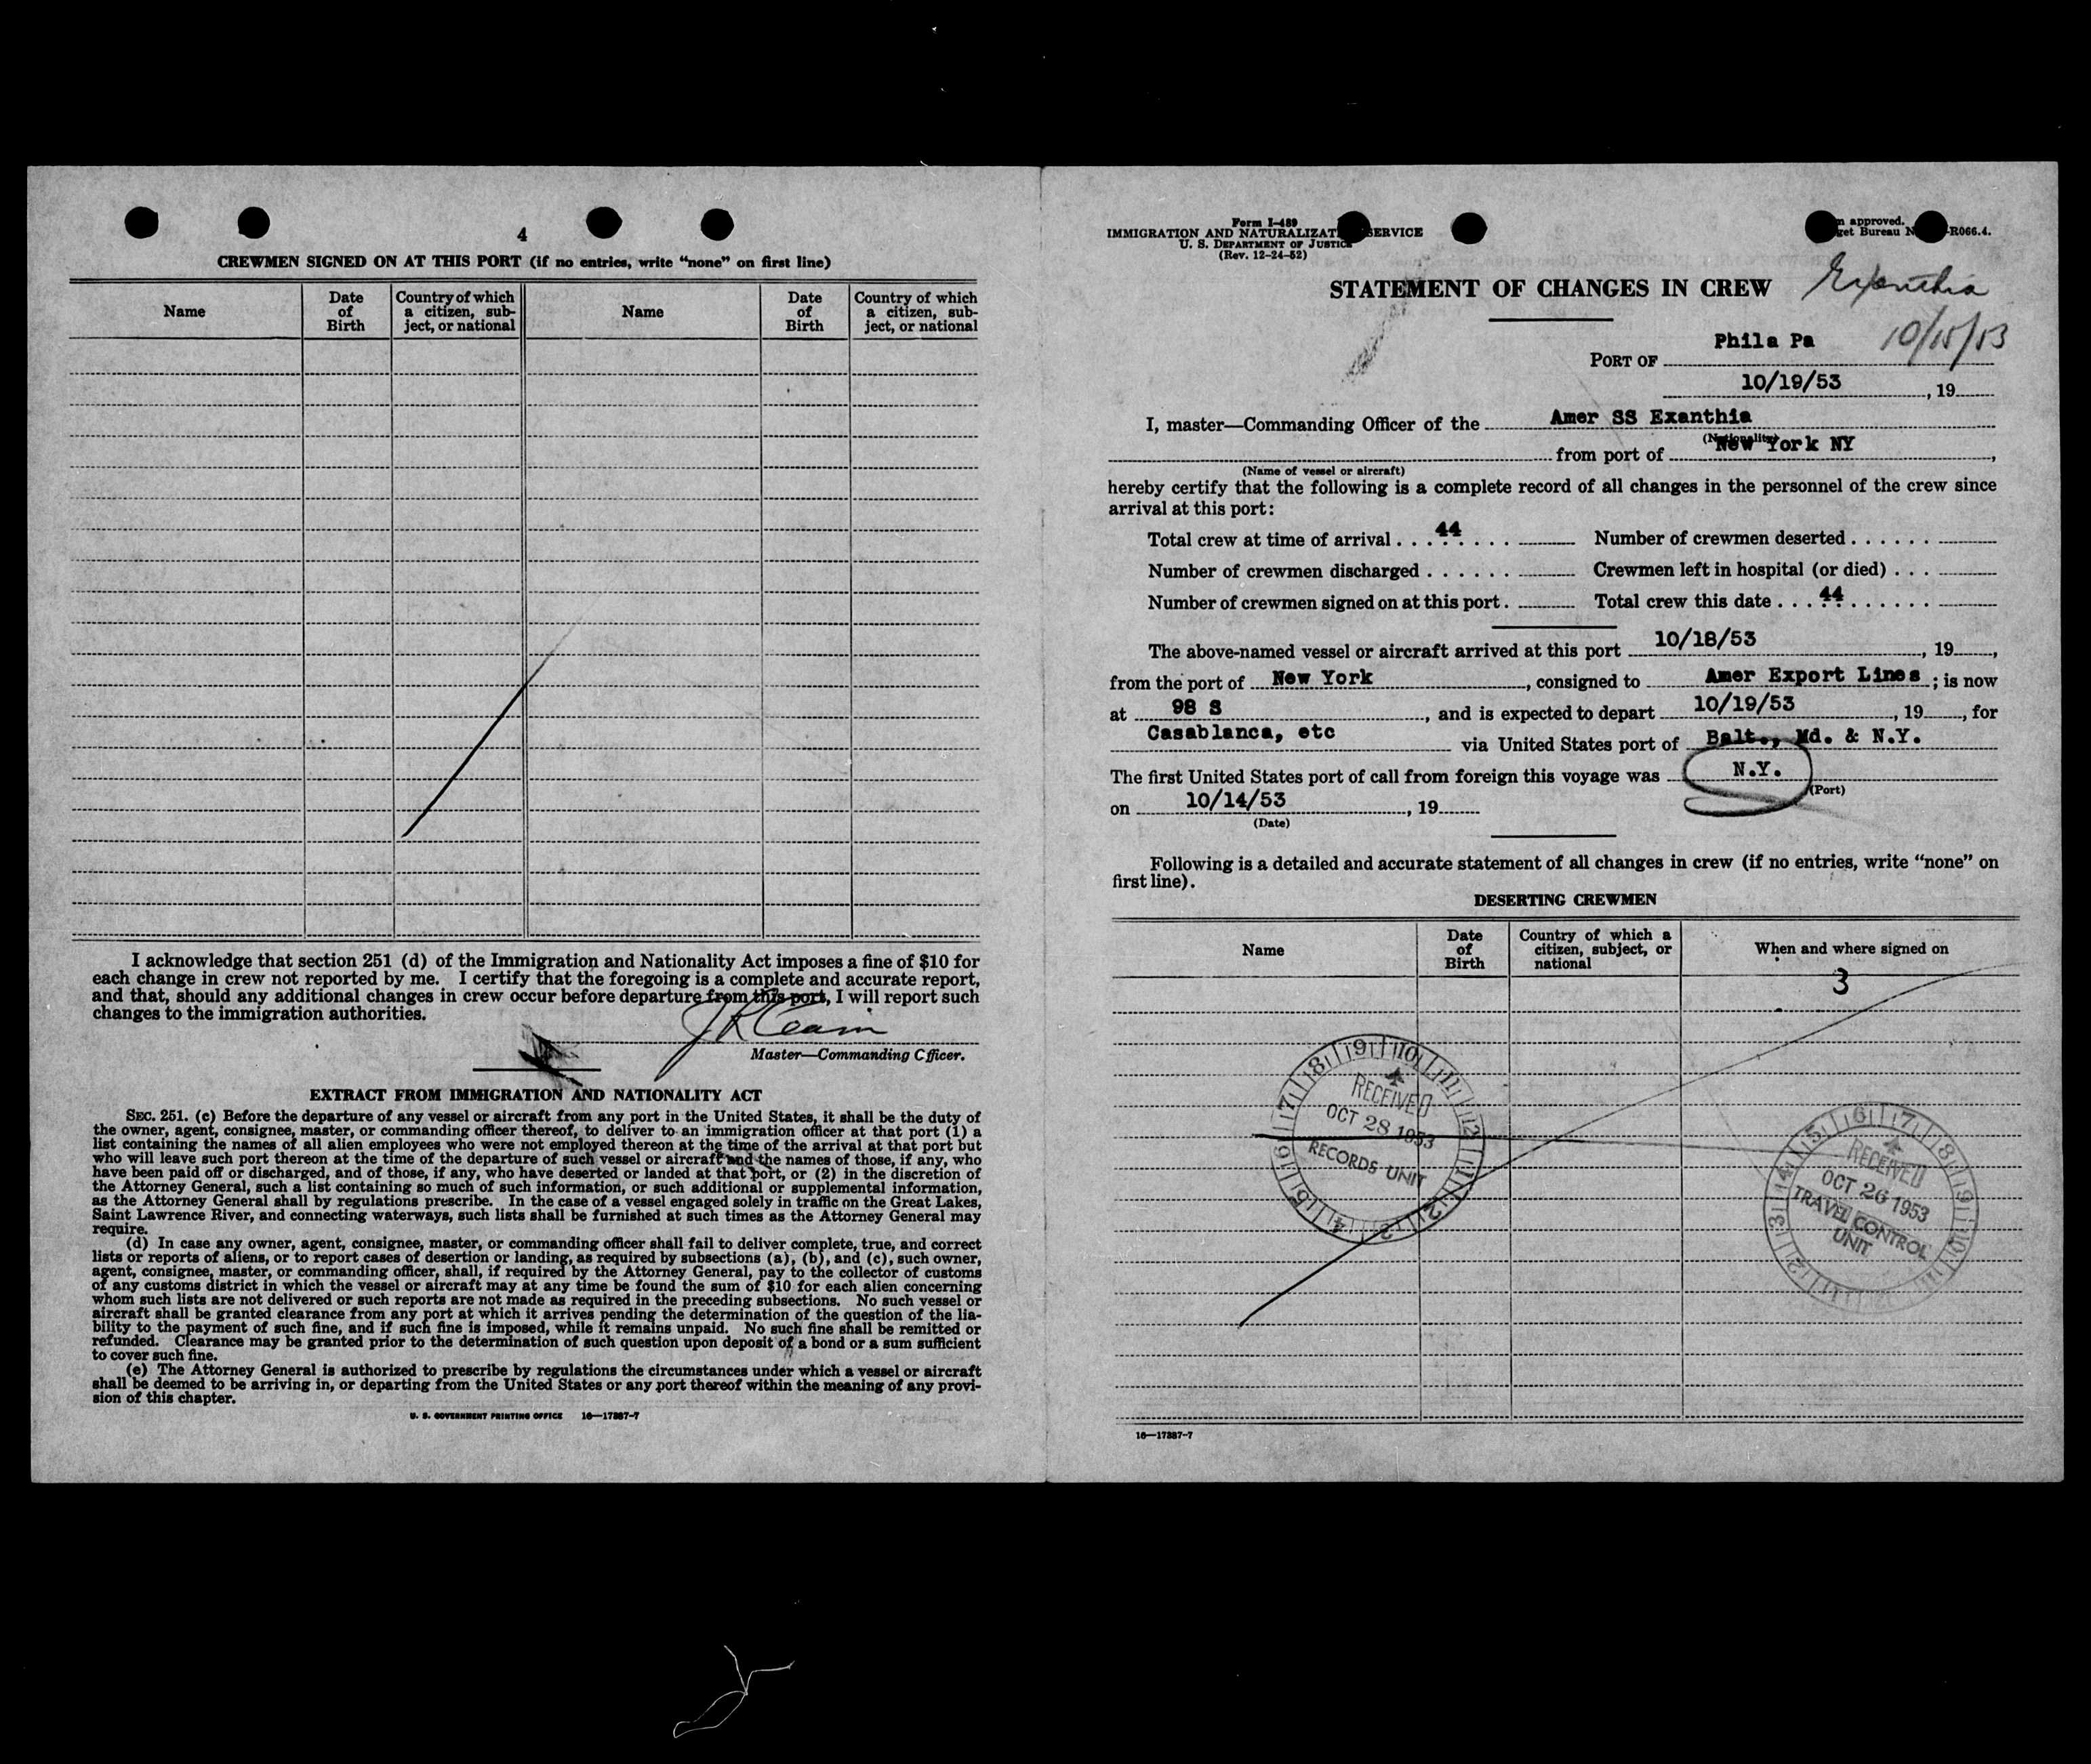 4
CREWMEN SIGNED ON AT THIS PORT (if no entries, write “none” on first line)
Name
Date of Birth
Country of which a citizen, sub-ject, or national
Name
Date of Birth
Country of which a citizen, sub-ject, or national
I acknowledge that section 251 (d) of the Immigration and Nationality Act imposes a fine of $10 for
each change in crew not reported by me. I certify that the foregoing is a complete and accurate report,
and that, should any additional changes in crew occur before departure from this port, I will report such
changes to the immigration authorities.
Master—Commanding Officer.
EXTRACT FROM IMMIGRATION AND NATIONALITY ACT
SEC. 251. (c) Before the departure of any vessel or aircraft from any port in the United States, it shall be the duty of
the owner, agent, consignee, master, or commanding officer thereof, to deliver to an immigration officer at that port (1) a
list containing the names of all alien employees who were not employed thereon at the time of the arrival at that port but
who will leave such port thereon at the time of the departure of such vessel or aircraft and the names of those, if any, who
have been paid off or discharged, and of those, if any, who have deserted or landed at that port, or (2) in the discretion of
the Attorney General, such a list containing so much of such information, or such additional or supplemental information,
as the Attorney General shall by regulations prescribe. In the case of a vessel engaged solely in traffic on the Great Lakes,
Saint Lawrence River, and connecting waterways, such lists shall be furnished at such times as the Attorney General may
require.
(d) In case any owner, agent, consignee, master, or commanding officer shall fail to deliver complete, true, and correct
lists or reports of aliens, or to report cases of desertion or landing, as required by subsections (a), (b), and (c), such owner,
agent, consignee, master, or commanding officer, shall, if required by the Attorney General, pay to the collector of customs
of any customs district in which the vessel or aircraft may at any time be found the sum of $10 for each alien concerning
whom such lists are not delivered or such reports are not made as required in the preceding subsections. No such vessel or
aircraft shall be granted clearance from any port at which it arrives pending the determination of the question of the lia-
bility to the payment of such fine, and if such fine is imposed, while it remains unpaid. No such fine shall be remitted or
refunded. Clearance may be granted prior to the determination of such question upon deposit of a bond or a sum sufficient
to cover such fine.
(e) The Attorney General is authorized to prescribe by regulations the circumstances under which a vessel or aircraft
shall be deemed to be arriving in, or departing from the United States or any port thereof within the meaning of any provi-
sion of this chapter.
U. S. GOVERNMENT PRINTING OFFICE 16—17387-7
Form I-489
IMMIGRATION AND NATURALIZAT SERVICE
U. S. DEPARTMENT OF JUSTICE
(Rev. 12-24-52)
approved.
get Bureau N -R066.4.
STATEMENT OF CHANGES IN CREW
Exanthia
10/15/53
Phila Pa
PORT OF
10/19/53 , 19
I, master—Commanding Officer of the Amer SS Exanthia
(Nationality)
from port of New York NY ,
(Name of vessel or aircraft)
hereby certify that the following is a complete record of all changes in the personnel of the crew since
arrival at this port:
Total crew at time of arrival . . . 44 . . . Number of crewmen deserted . . . . . .
Number of crewmen discharged . . . . . . Crewmen left in hospital (or died) . . .
Number of crewmen signed on at this port . Total crew this date . . . 44 . . . . . .
The above-named vessel or aircraft arrived at this port 10/18/53 , 19 ,
from the port of New York , consigned to Amer Export Lines ; is now
at 98 S , and is expected to depart 10/19/53 , 19 , for
Casablanca, etc via United States port of Balt., Md. & N.Y.
The first United States port of call from foreign this voyage was N.Y.
(Port)
on 10/14/53 , 19
(Date)
Following is a detailed and accurate statement of all changes in crew (if no entries, write “none” on
first line).
DESERTING CREWMEN
Name
Date of Birth
Country of which a citizen, subject, or national
When and where signed on
3
RECEIVED
OCT 28 1953
RECORDS UNIT
RECEIVED
OCT 26 1953
TRAVEL CONTROL
UNIT
16—17387-7